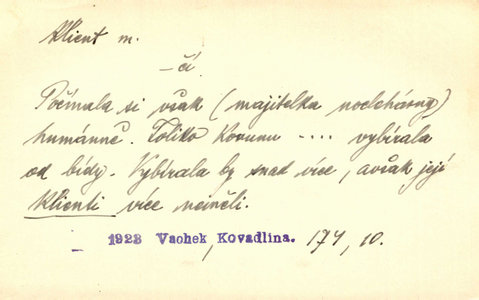 Klient m.
-čí.
Počínala si však (majitelka noclehárny)
humánně. Toliko Korunu .... vybírala
od bídy. Vybírala by snad více, avšak její
klienti více neměli.
1923 Vachek, Kovadlina. 174, 10.